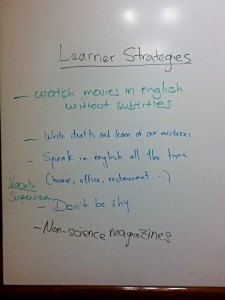 Learner Strategies
- Watch movies in english
without subtitles
- Write drafts and learn of our mistakes
- Speak in english all the time
(house, office, restaurant...)
Vocab
Supervision
- Don't be shy
- Non-science magazines